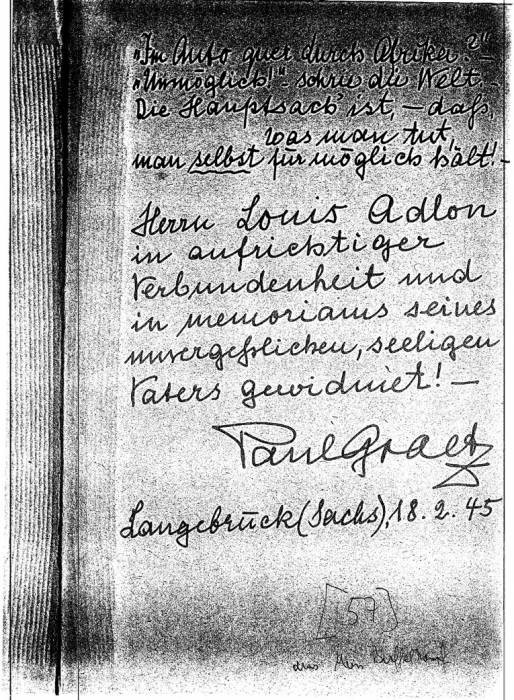 „Im Auto quer durch Afrika?“ –
„Unmöglich!“ – schrie die Welt. –
Die Hauptsach' ist, – daß,
was man tut,
man selbst für möglich hält! –
Herrn Louis Adlon
in aufrichtiger
Verbundenheit und
in memoriams seines
unvergeßlichen, seeligen
Vaters gewidmet! –
Paul Graetz
Langebrück (Sachs), 18. 2. 45
[57]
aus